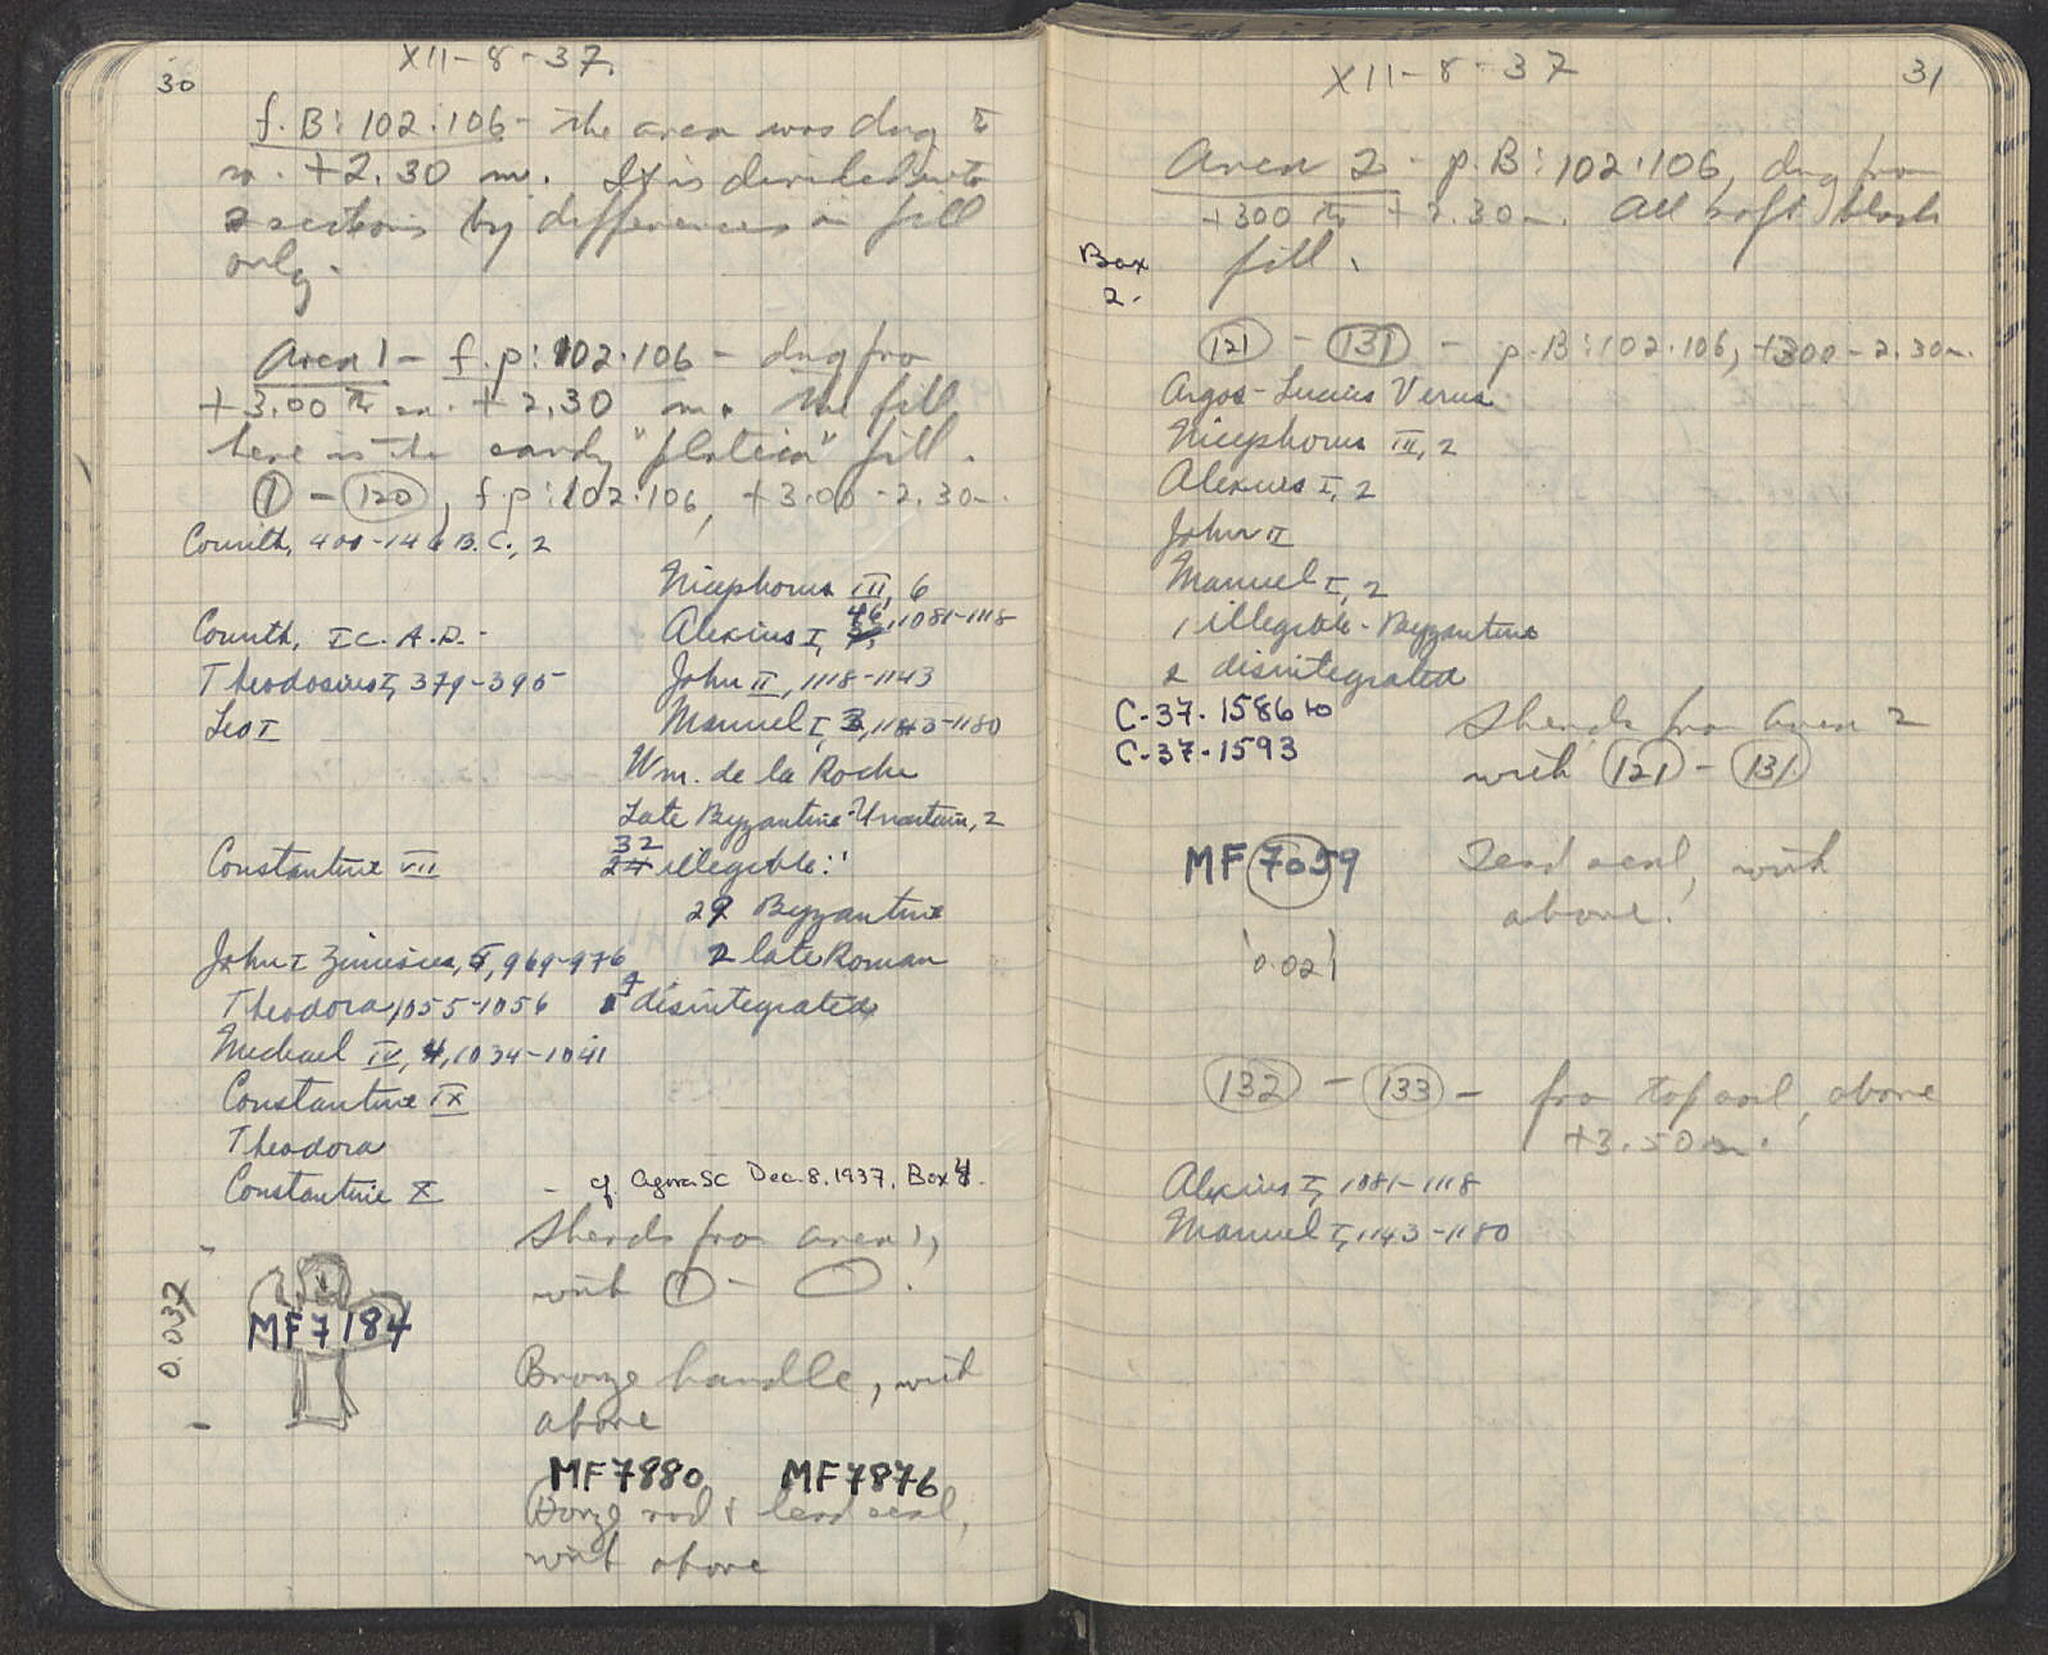 30
XII-8-37.
f. B: 102.106 - The area was dug to
m. +2.30 m. It is divided into
2 sections by differences in fill
only.
Area 1 - f.p: 102.106 - dug fro
+3.00 to m. +2.30 m. The fill
here is the sandy "plateia" fill.
1 - 120, f.p: 102.106, +3.00-2.30m.
Corinth, 400-146 B.C., 2
Corinth, I c. A.D. -
Theodosius I, 379-395
Leo I
Constantine VII
John I Zimisces, 969-976
Theodora, 1055-1056
Michael IV, 4, 1034-1041
Constantine IX
Theodora
Constantine X
Nicephorus III, 6
Alexius I, 46, 1081-1118
John II, 1118-1143
Manuel I, 3, 1143-1180
Wm. de la Roche
Late Byzantine-Uncertain, 2
32
24 illegible:
29 Byzantine
2 late Roman
disintegrated
- cf. Agora SC Dec. 8. 1937, Box 4.
Sherds fro area 1,
with 1 -
0.037
MF7184
Bronze handle, with
above
MF7880 MF7876
Bronze rod & lead seal,
with above
31
XII-8-37
Area 2 - p.B: 102.106, dug fro
+300 to +2.30m. All soft black
fill.
Box
2.
121 - 131 - p.B: 102.106, +300-2.30m.
Argos-Lucius Verus
Nicephorus III, 2
Alexius I, 2
John II
Manuel I, 2
1 illegible - Byzantine
2 disintegrated
C-37-1586 to
C-37-1593
Sherds fro area 2
with 121 - 131.
MF 7059
Lead seal, with
above.
0.021
132 - 133 - fro topsoil, above
+3.50m.
Alexius I, 1081-1118
Manuel I, 1143-1180